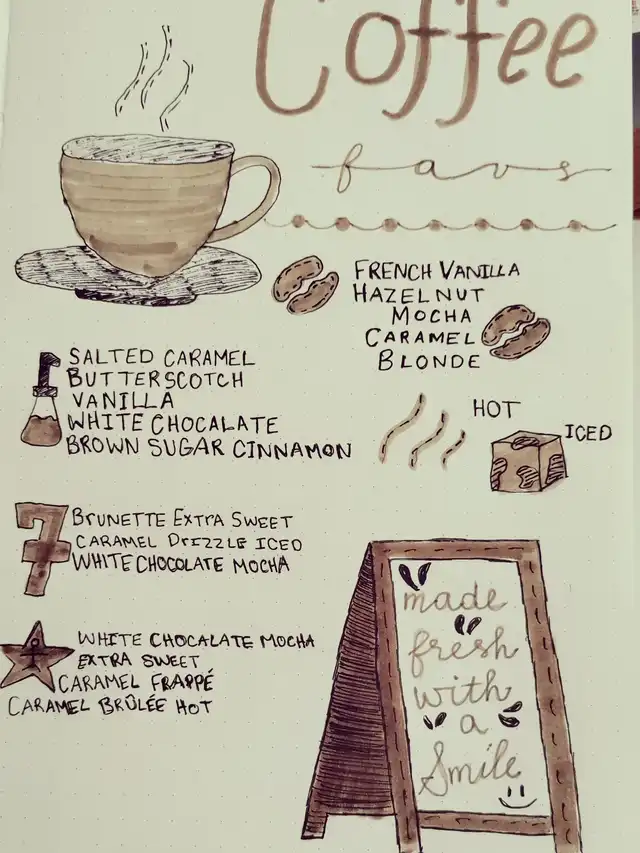 Coffee
favs
FRENCH VANILLA
HAZELNUT
MOCHA
CARAMEL
BLONDE
SALTED CARAMEL
BUTTERSCOTCH
VANILLA
WHITE CHOCALATE
BROWN SUGAR CINNAMON
HOT
ICED
7
BRUNETTE EXTRA SWEET
CARAMEL DRIZZLE ICED
WHITE CHOCOLATE MOCHA
WHITE CHOCALATE MOCHA
EXTRA SWEET
CARAMEL FRAPPÉ
CARAMEL BRÛLÉE HOT
made
fresh
with
a
Smile